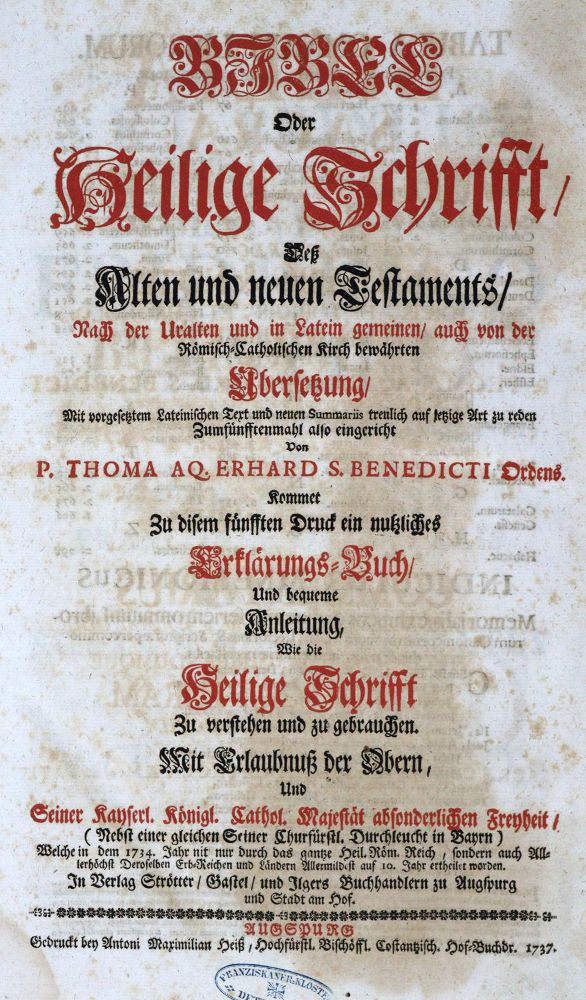 BIBEL
Oder
Heilige Schrifft/
Deß
Alten und neuen Testaments/
Nach der Uralten und in Latein gemeinen/ auch von der
Römisch-Catholischen Kirch bewährten
Ubersetzung/
Mit vorgesetztem Lateinischen Text und neuen Summariis treulich auf jetzige Art zu reden
Zumfünfftenmahl also eingericht
Von
P. THOMA AQ. ERHARD S. BENEDICTI Ordens.
Kommet
Zu disem fünfften Druck ein nutzliches
Erklärungs-Buch/
Und bequeme
Anleitung,
Wie die
Heilige Schrifft
Zu verstehen und zu gebrauchen.
Mit Erlaubnuß der Obern,
Und
Seiner Kayserl. Königl. Cathol. Majestät absonderlichen Freyheit/
( Nebst einer gleichen Seiner Churfürstl. Durchleucht in Bayrn )
Welche in dem 1734. Jahr nit nur durch das gantze Heil. Röm. Reich, sondern auch All-
lerhöchst Deroselben Erb-Reichen und Ländern Allermildist auf 10. Jahr ertheilet worden.
In Verlag Strötter/ Gastel/ und Ilgers Buchhandlern zu Augspurg
und Stadt am Hof.
AUGSPURG
Gedruckt bey Antoni Maximilian Heiß/ Hochfürstl. Bischöffl. Costantzisch. Hof-Buchdr. 1737.
FRANZISKANER-KLOSTE